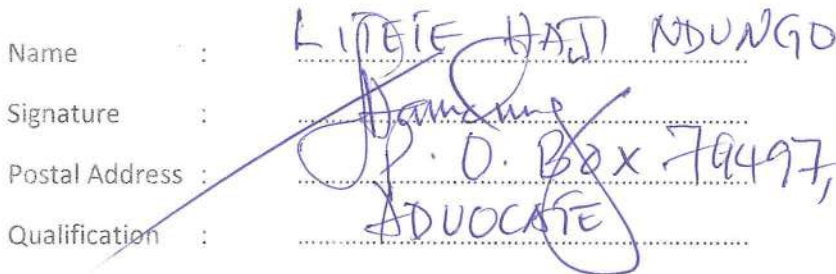 Name : LITETE HAJI NDUNGO
Signature :
Postal Address : P. O. BOX 79497,
Qualification : ADVOCATE